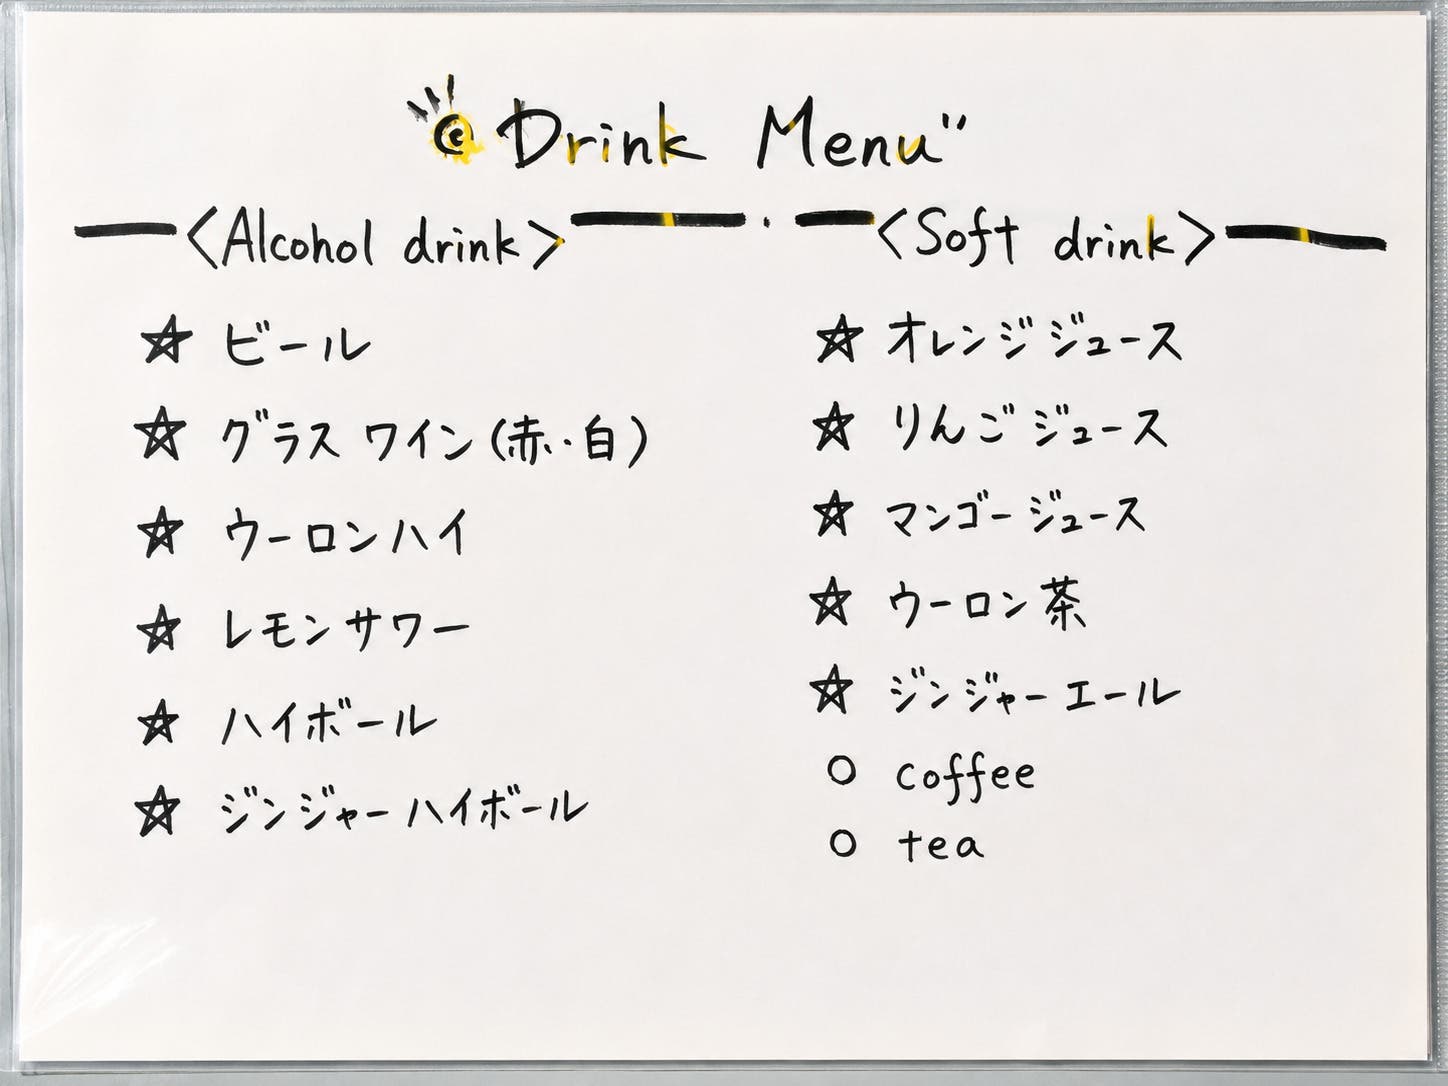 Drink Menu"
<Alcohol drink>
☆ ビール
☆ グラス ワイン (赤・白)
☆ ウーロンハイ
☆ レモンサワー
☆ ハイボール
☆ ジンジャー ハイボール
<Soft drink>
☆ オレンジジュース
☆ りんごジュース
☆ マンゴージュース
☆ ウーロン茶
☆ ジンジャーエール
○ coffee
○ tea